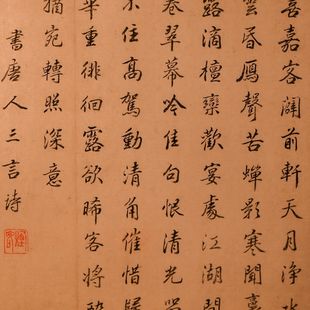 喜嘉客闢前軒天月淨水
雲昏鴈聲苦蟾影寒聞裛
露滴檀欒歡宴處江湖間
卷翠幕吟佳句恨清光留
不住高駕動清角催惜歸
重徘徊露欲晞客將醉
猶宛轉照深意
書唐人三言詩